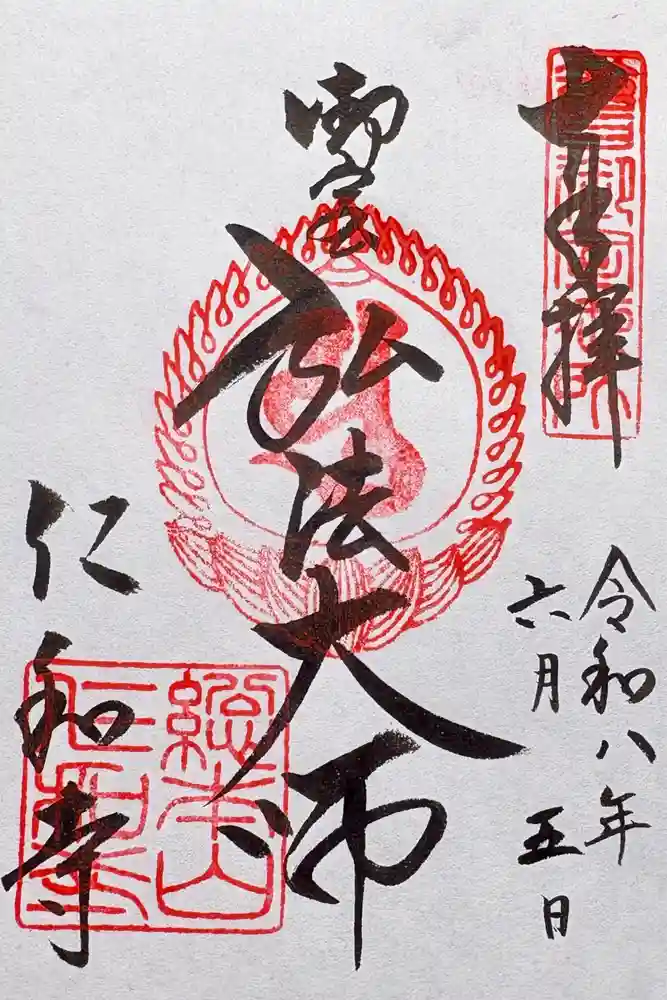 奉拝
令和八年
六月五日
御室
弘法大師
仁和寺
總本山
仁和寺